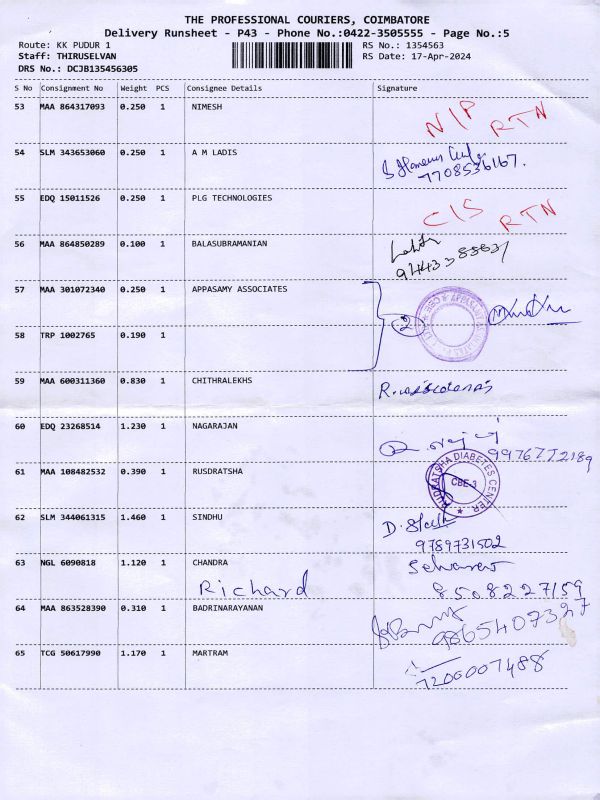 THE PROFESSIONAL COURIERS, COIMBATORE
Delivery Runsheet - P43 - Phone No.:0422-3505555 - Page No.:5
Route: KK PUDUR 1 RS No.: 1354563
Staff: THIRUSELVAN RS Date: 17-Apr-2024
DRS No.: DCJB135456305
S No Consignment No Weight PCS Consignee Details Signature
53 MAA 864317093 0.250 1 NIMESH N/P RTN
54 SLM 343653060 0.250 1 A M LADIS
7708536167.
55 EDQ 15011526 0.250 1 PLG TECHNOLOGIES C/S RTN
56 MAA 864850289 0.100 1 BALASUBRAMANIAN
57 MAA 301072340 0.250 1 APPASAMY ASSOCIATES
2
58 TRP 1002765 0.190 1
59 MAA 600311360 0.830 1 CHITHRALEKHS
60 EDQ 23268514 1.230 1 NAGARAJAN
9976772189
61 MAA 108482532 0.390 1 RUSDRATSHA
RUDRATSHA DIABETES CENTER
CBE-3
62 SLM 344061315 1.460 1 SINDHU
9789731502
63 NGL 6090818 1.120 1 CHANDRA
Richard 8508227159
64 MAA 863528390 0.310 1 BADRINARAYANAN
9865407327
65 TCG 50617990 1.170 1 MARTRAM
7200007488